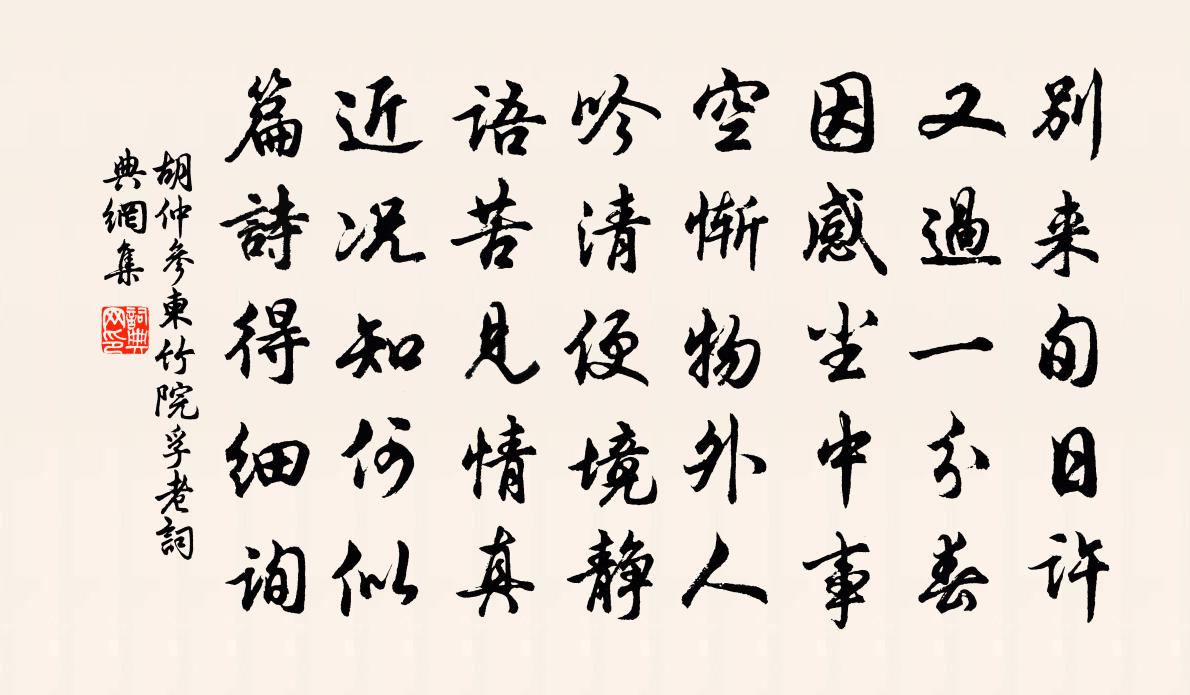 別来旬日许
又過一分春
因感尘中事
空惭物外人
吟清便境静
语苦見情真
近况知何似
篇詩得细询
胡仲参東竹院孚老詞
典網集
詞典
网印